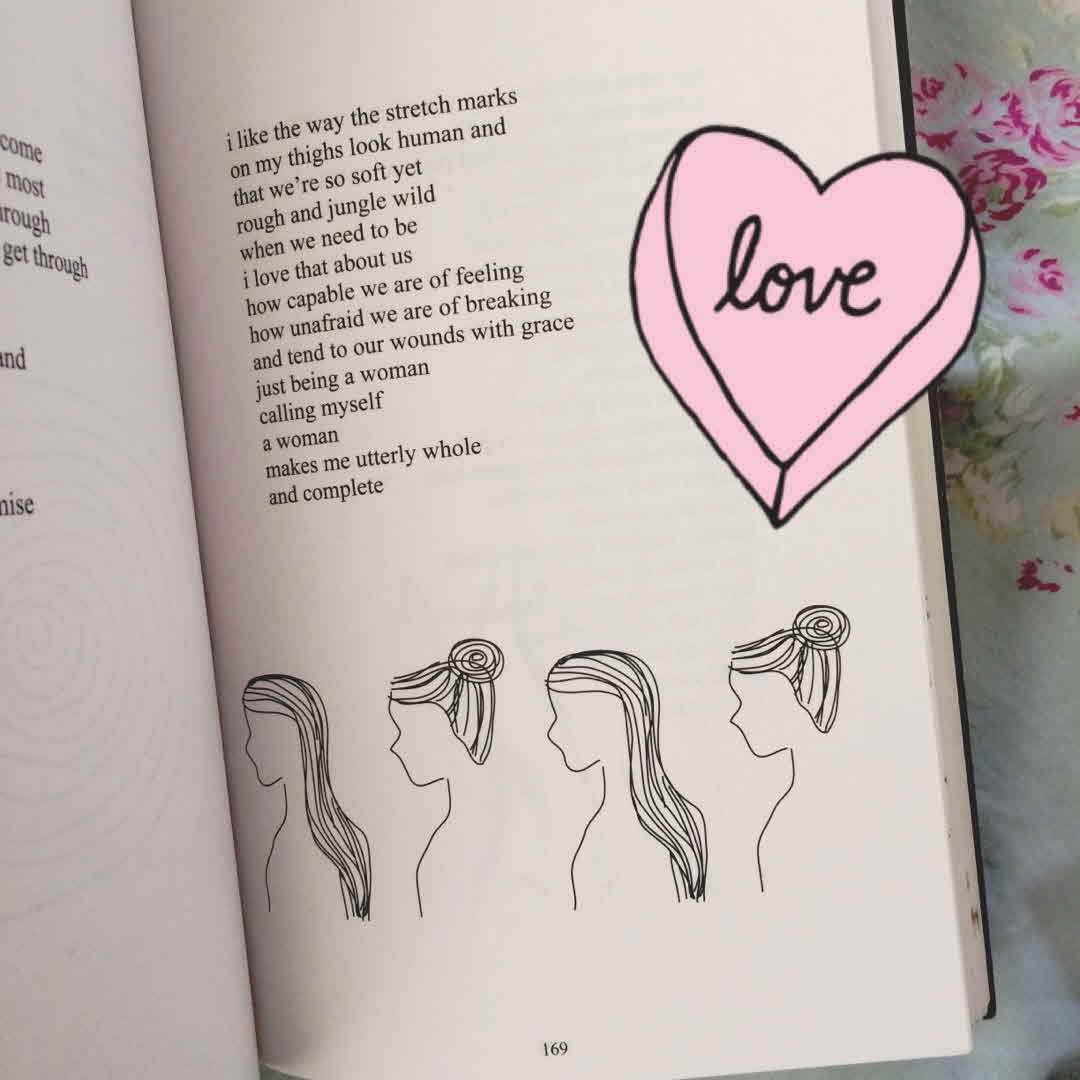 come
most
rough
get through
and
nise
i like the way the stretch marks
on my thighs look human and
that we're so soft yet
rough and jungle wild
when we need to be
i love that about us
how capable we are of feeling
how unafraid we are of breaking
and tend to our wounds with grace
just being a woman
calling myself
a woman
makes me utterly whole
and complete
love
169